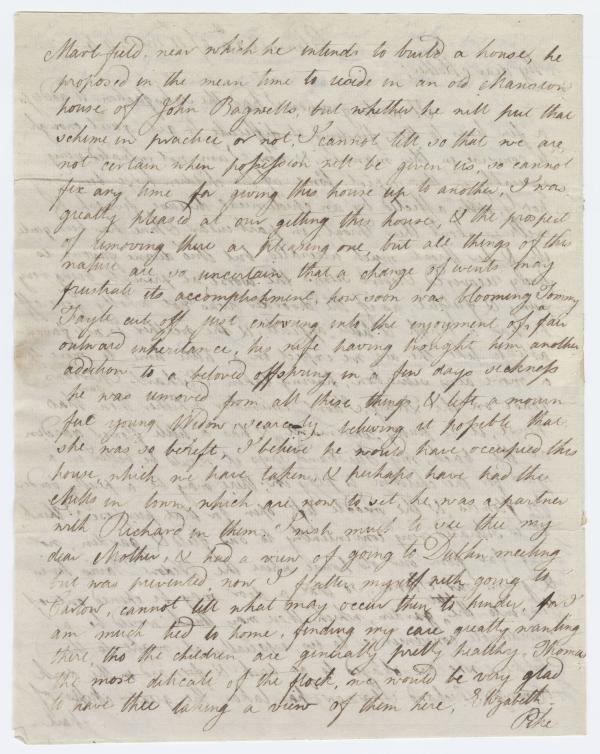 Marlfield, near which he intends to build a house, he
proposed in the mean time to reside in an old Mansion
house of John Bagwells, but whether he will put that
scheme in practice or not, I cannot tell, so that we are
not certain when possession will be given us, so cannot
fix any time for giving this house up to another, I was
greatly pleased at our getting this house, & the prospect
of removing there a pleasing one, but all things of this
nature are so uncertain that a change of events may
frustrate its accomplishment, how soon was blooming Tommy
Sayle cut off just entering into the enjoyment of a fair
outward inheritance, his wife having brought him another
addition to a beloved offspring, in a few days sickness
he was removed from all these things, & left a mourn
ful young Widow, scarcely believing it possible that
she was so bereft, I believe he would have occupied this
house which we have taken, & perhaps have had the
Mills in town, which are now to set, he was a partner
with Richard in them. I wish much to see thee my
dear Mother, & had a view of going to Dublin meeting
but was prevented, now I flatter myself with going to
Carlow, cannot tell what may occur then to hinder, for I
am much tied to home, finding my care greatly wanting
there, tho the children are generally pretty healthy. Thomas
the most delicate of the flock, we would be very glad
to have thee taking a view of them here, Elizabeth
Pike